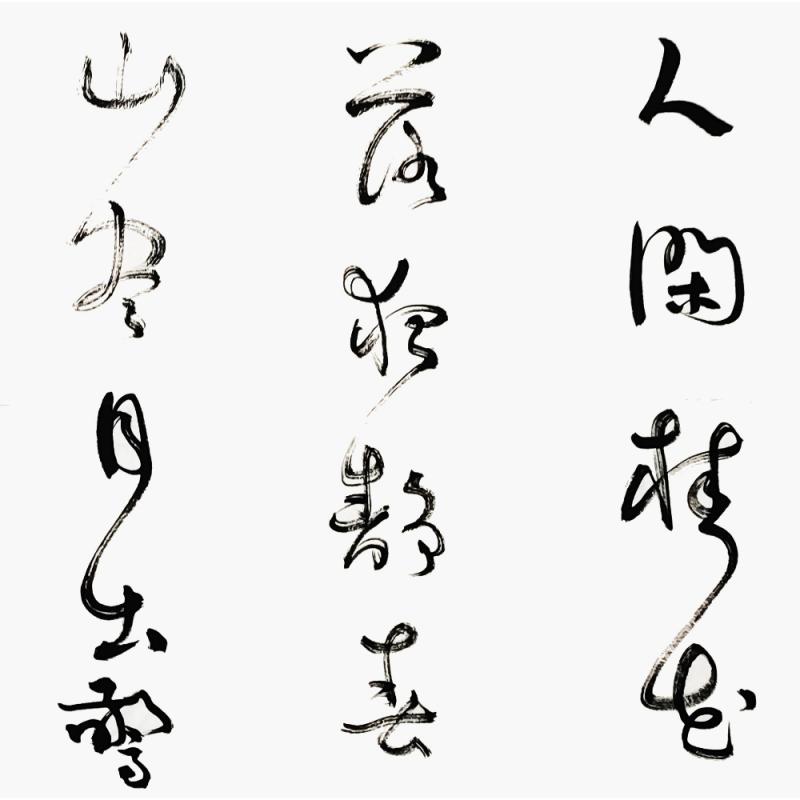 人閑桂花
落夜静春
山空月出驚